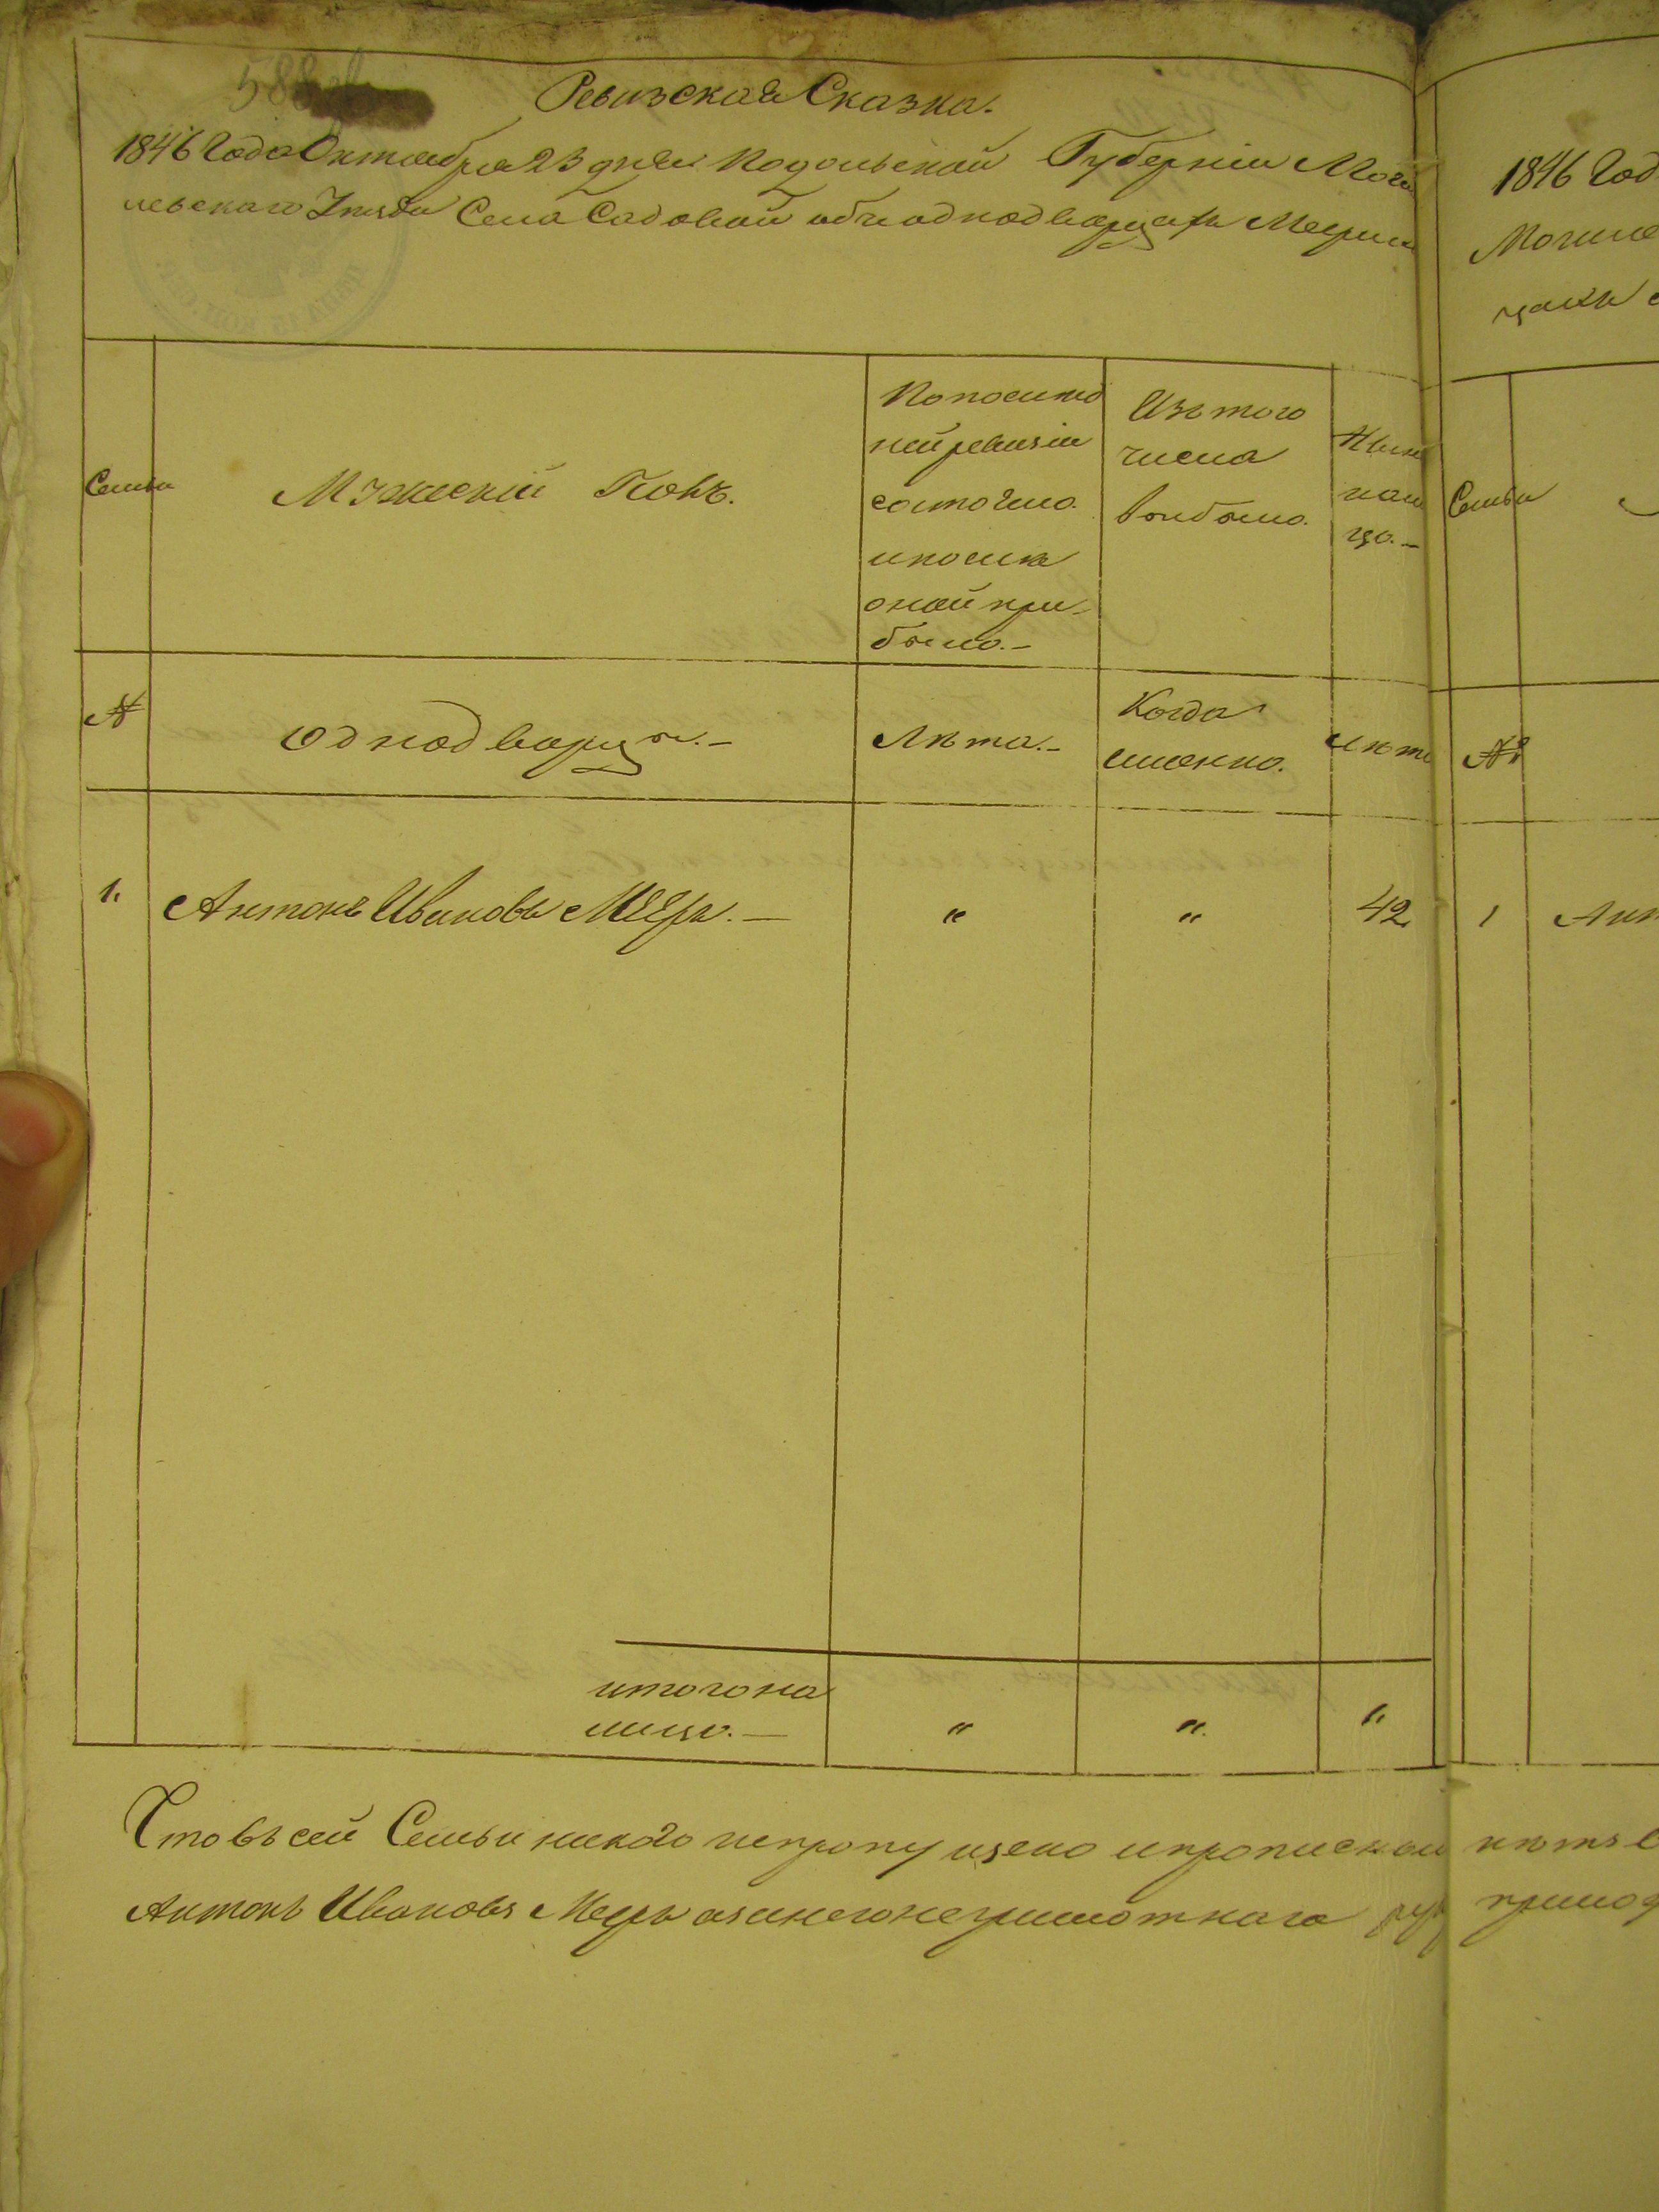 588
Ревизская Сказка.
1846 Года Октября 23 дня Подольской Губерніи Моги
левскаго Уезда Села Садовой объ однодворцахъ
Семьи
Мужескій Полъ.
По послед
ней ревизіи
состояло
и после
оной при-
было.-
Изъ того
числа
выбыло.
Ныне
на ли
цо.-
№
Однодворцы.-
Лѣта.-
Когда
именно.
Лѣта
1.
Антонъ Ивановъ Мееръ.-
"
"
42
итого на
лицо.-
"
"
"
Что въ сей Семьи никого не пропущено и прописной
Антонъ Ивановъ Мееръ а за него неграмотнаго рук
1846 Год
Могиле
цахъ
Семьи
№
1
Ант
нѣтъ